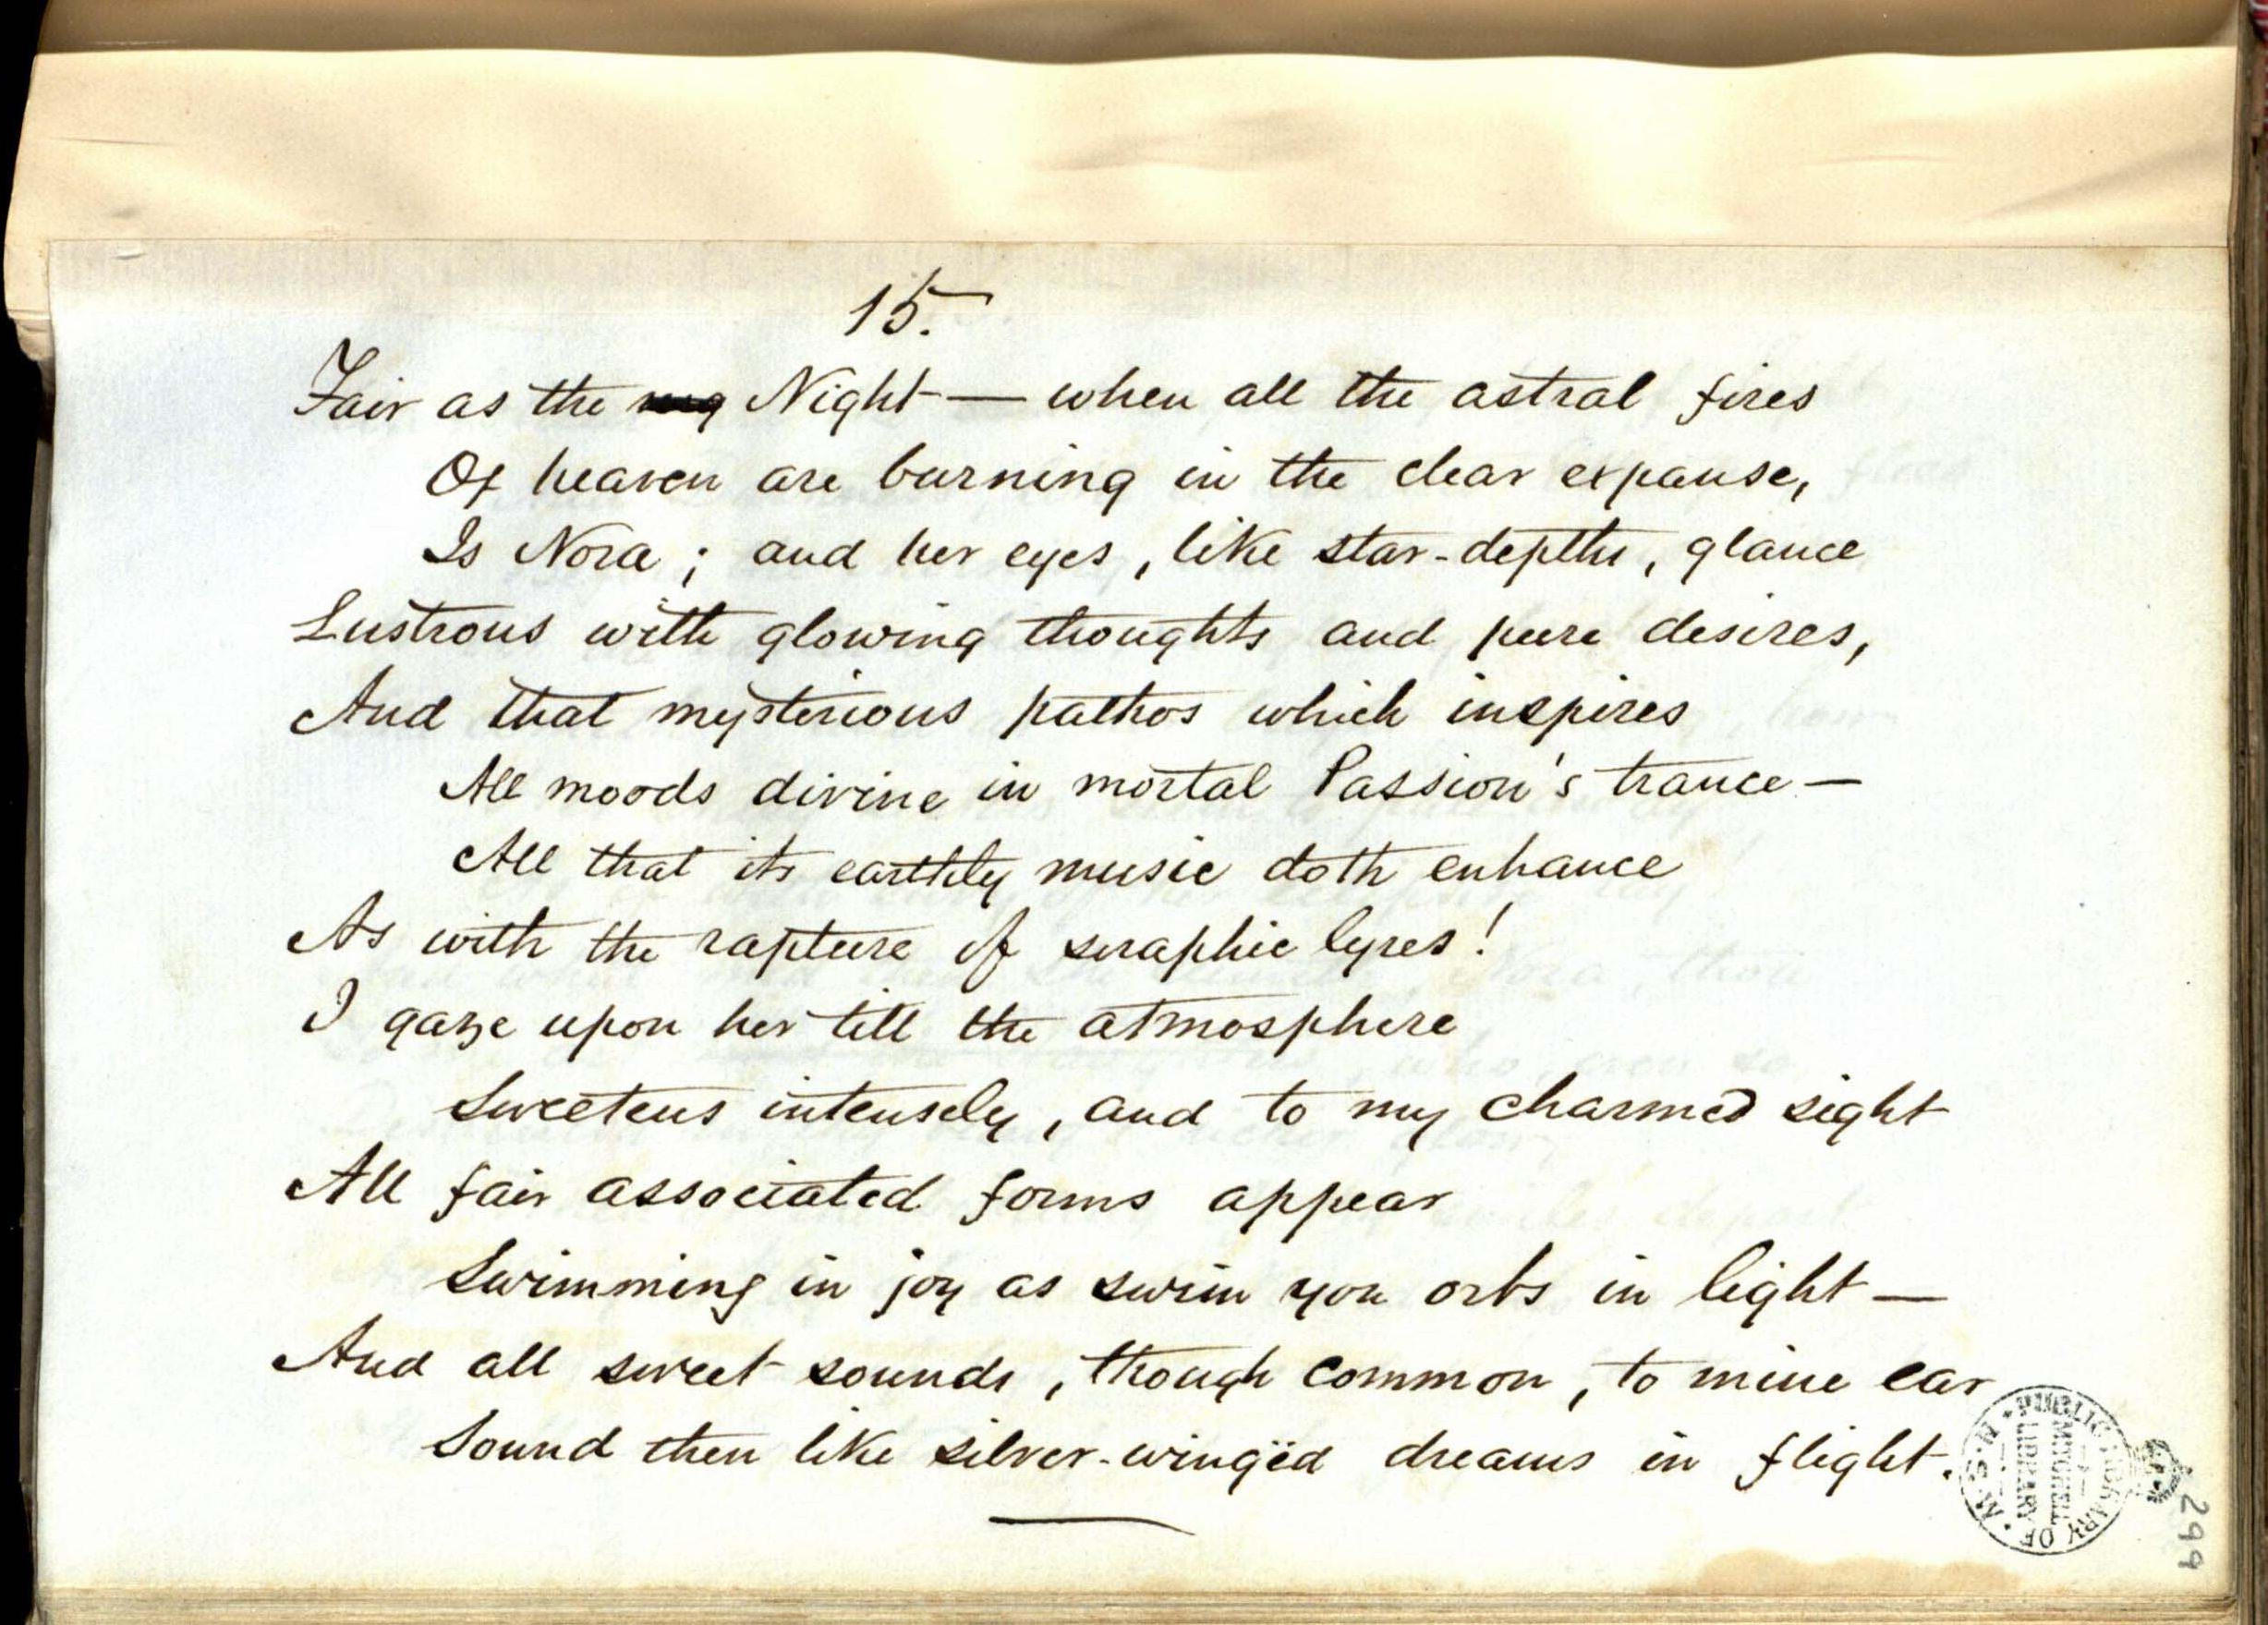 15.
Fair as the Night — when all the astral fires
Of heaven are burning in the clear expanse,
Is Nora ; and her eyes , like star-depths , glance
Lustrous with glowing thoughts and pure desires,
And that mysterious pathos which inspires
All moods divine in mortal Passion's trance —
All that its earthly music doth enhance
As with the rapture of seraphic lyres!
I gaze upon her till the atmosphere
Sweetens intensely , and to my charmed sight
All fair associated forms appear
Swimming in joy as swim yon orbs in light —
And all sweet sounds , though common , to mine ear
Sound then like silver-wingëd dreams in flight.
PUBLIC LIBRARY OF N.S.W.
MITCHELL
LIBRARY
299